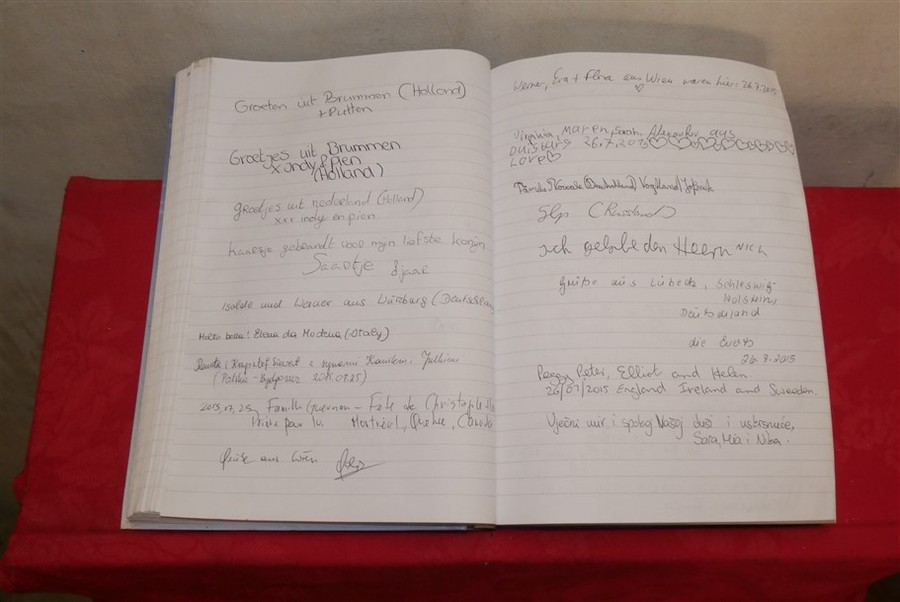 Groeten uit Brummen (Holland)
+ Putten
Groetjes uit Brummen
x indy & Pien
(Holland)
groetjes uit nederland (Holland)
xxx indy en pien
kaarsje gebrandt voor mijn liefste konijn
Saartje 8 jaar
Isolde und Werner aus Würzburg (Deutschland
Molto bella! Elena da Modena (Italy)
i Krzysztof z synami Kamilem, Julianem
(Polska - Bydgoszcz 2015.07.25)
2015, 07, 25, Famille - Fête de Christophe
Prière pour Montréal, Québec, Canada
Grüße aus Wien
Werner, Eva + Flora aus Wien waren hier: 26.7.2015
Virginia, Maren, Sarah, Alexander aus
Duisburg 26.7.2015
Love
Familie (Deutschland) Vogtland
(Russland)
Ich gelobe den Herrn NICK
Grüße aus Lübeck, Schleswig
Holstein
Deutschland
die
26.7.2015
Peggy Peter, Elliot and Helen.
26/07/2015 England Ireland and Sweeden.
Vječni mir i spokoj Našoj duši i uskrsnuće,
Sara, Mia i Nika.